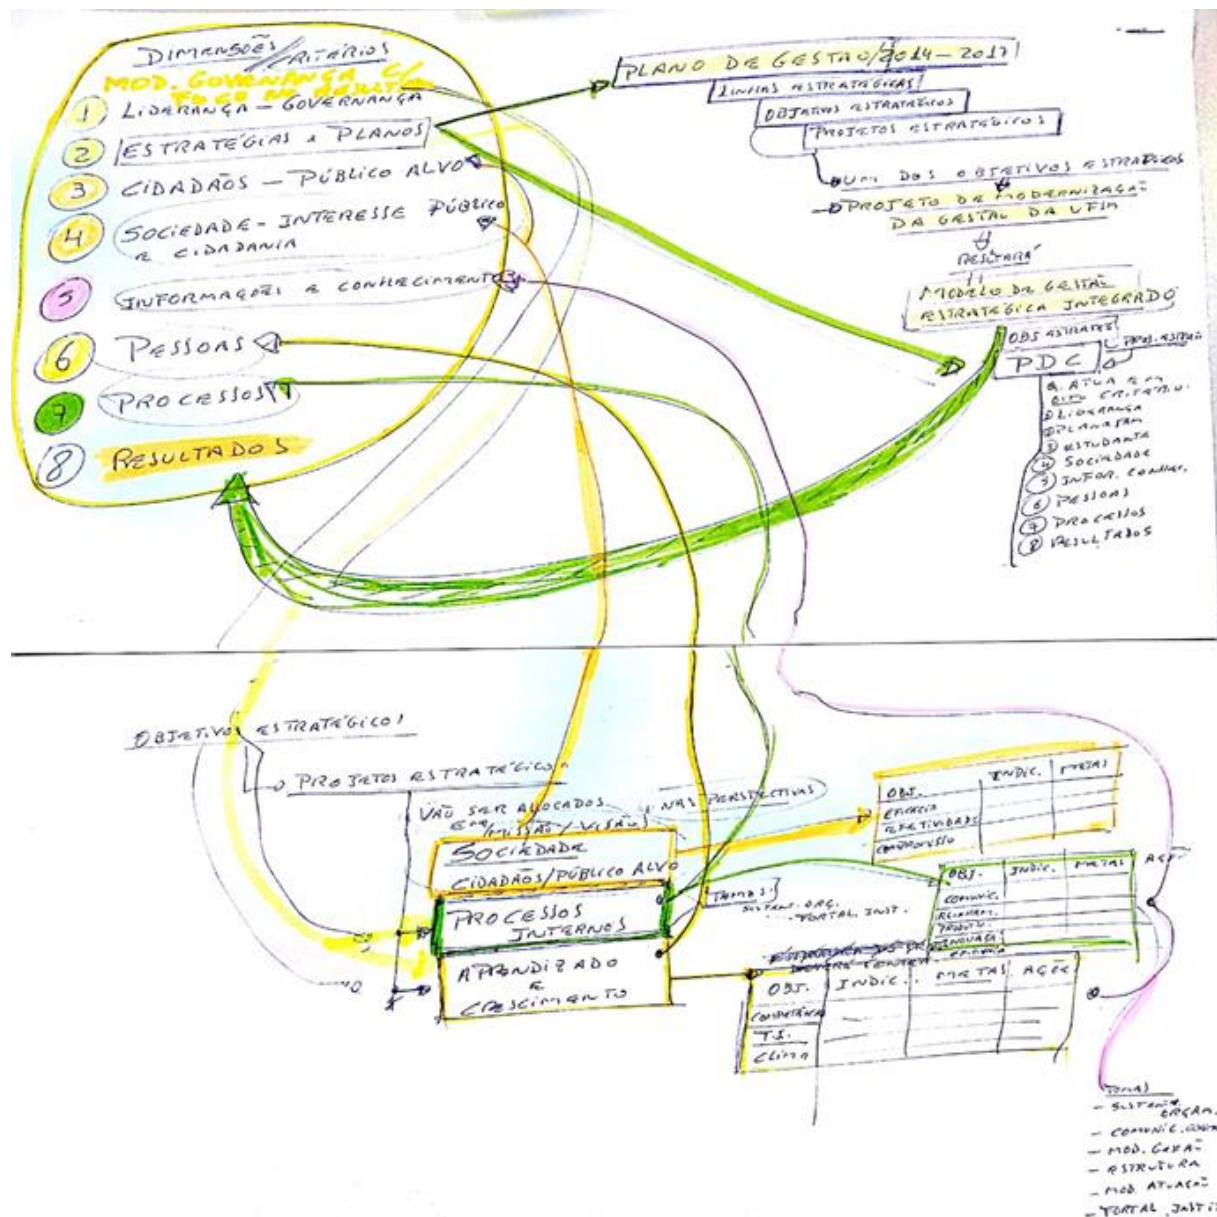 DIMENSÕES/CRITÉRIOS
MOD. GOVERNANÇA C/
FOCO NO RESULT
1 LIDERANÇA - GOVERNANÇA
2 ESTRATÉGIAS e PLANOS
3 CIDADÃOS - PÚBLICO ALVO
4 SOCIEDADE - INTERESSE PÚBLICO
e CIDADANIA
5 INFORMAÇÕES e CONHECIMENTO
6 PESSOAS
7 PROCESSOS
8 RESULTADOS
PLANO DE GESTÃO/2014-2017
LINHAS ESTRATÉGICAS
OBJETIVOS ESTRATÉGICOS
PROJETOS ESTRATÉGICOS
UM DOS OBJETIVOS ESTRATÉGICOS
PROJETO DE MODERNIZAÇÃO
DA GESTÃO DA UFSM
RESULTARÁ
MODELO DE GESTÃO
ESTRATÉGICA INTEGRADO
OBJ ESTRATEG
PROJ. ESTRAT
PDC
ATUA EM
OITO CRITÉRIO
1 LIDERANÇA
2 PLANEJAM
3 ESTUDANTE
4 SOCIEDADE
5 INFOR. CONHEC.
6 PESSOAS
7 PROCESSOS
8 RESULTADOS
OBJETIVOS ESTRATÉGICOS
PROJETOS ESTRATÉGICOS
VÃO SER ALOCADOS NAS PERSPECTIVAS
(MISSÃO/VISÃO)
SOCIEDADE
CIDADÃOS/PÚBLICO ALVO
PROCESSOS
INTERNOS
APRENDIZADO
E
CRESCIMENTO
OBJ. INDIC. METAS
EFICÁCIA
EFETIVIDADE
COMPROMISSO
TEMAS
SUSTENT. ORG.
PORTAL INST.
OBJ. INDIC. METAS AÇÕE
COMUNIC.
PRODUTIV.
INOVAÇÃO
OBJ. INDIC. METAS AÇÕE
COMPETÊNCIA
T.I.
CLIMA
TEMAS
- SUSTENT.
ORGAN.
- COMUNIC.
- MOD. GESTÃO
- ESTRUTURA
- MOD. ATUAÇÃO
- PORTAL INSTIT